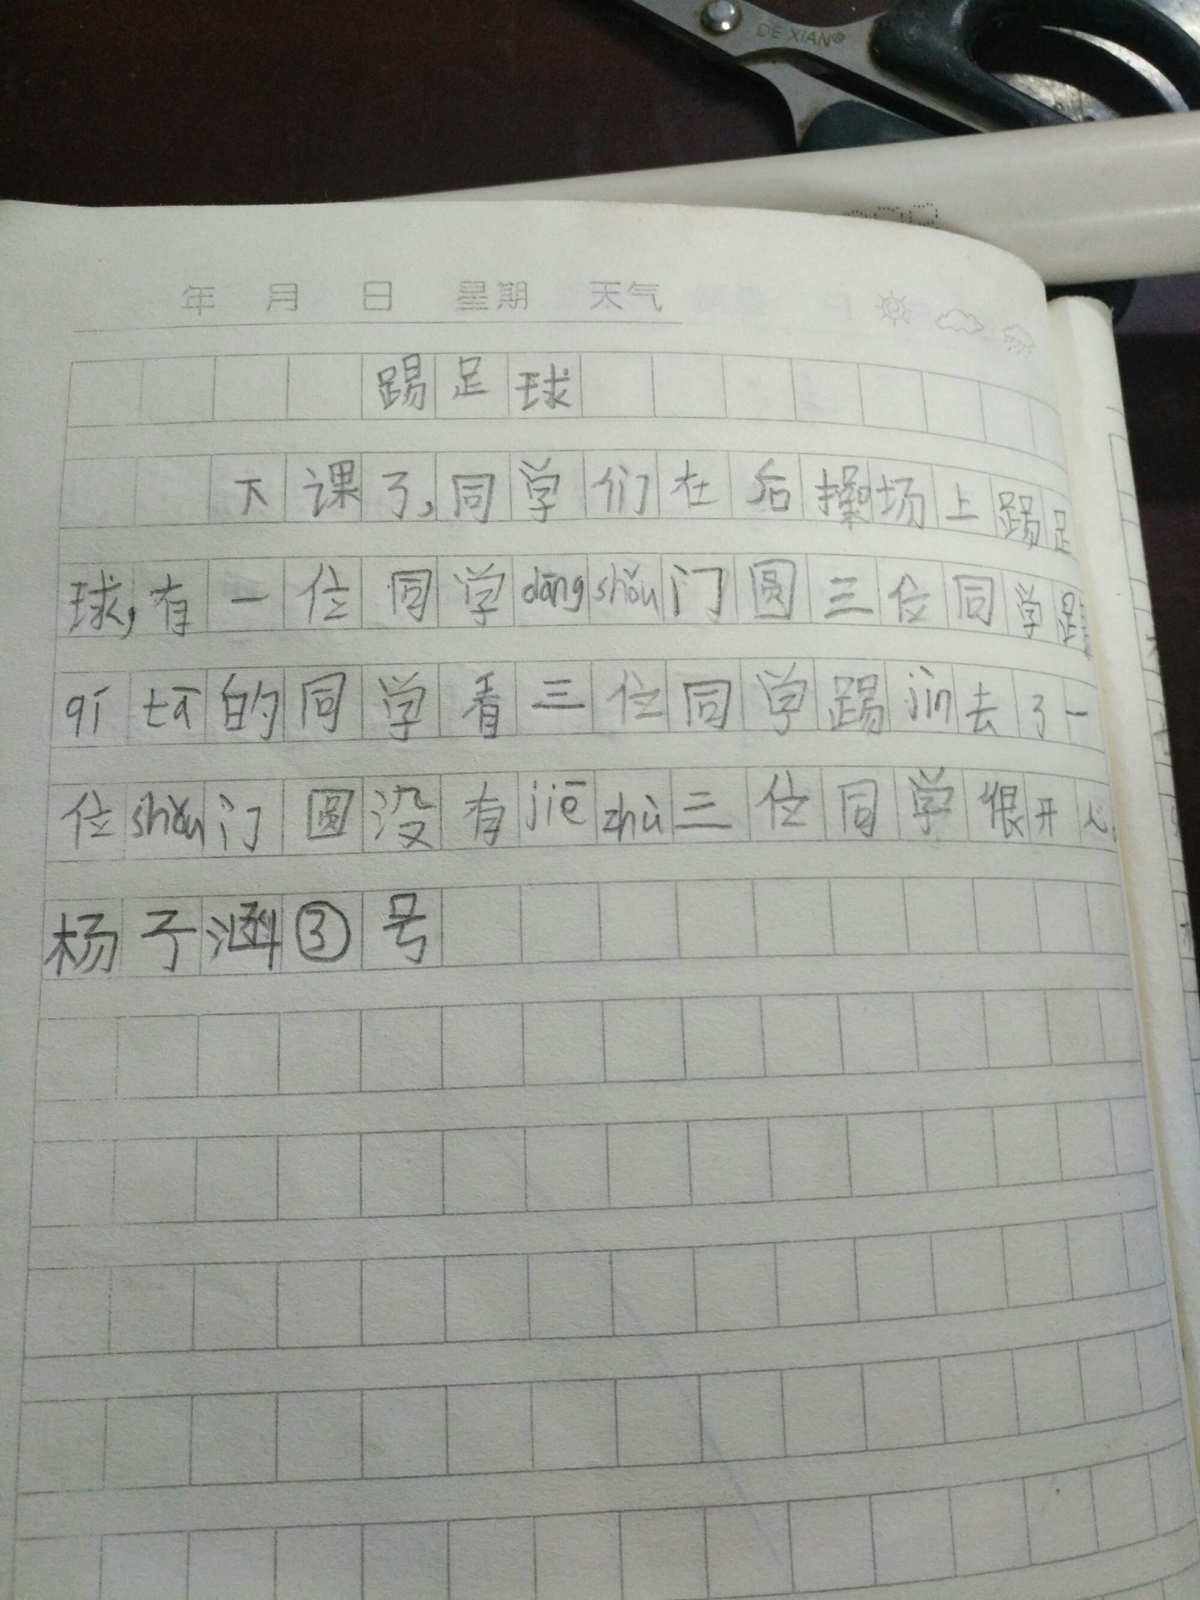 DE XIAN®
年 月 日 星期 天气
踢足球
下课了,同学们在后操场上踢足
球,有一位同学dāng shǒu门圆三位同学踢
qí tā的同学看三位同学踢jìn去了一
位shǒu门圆没有jiē zhù三位同学很开心.
杨子涵③号